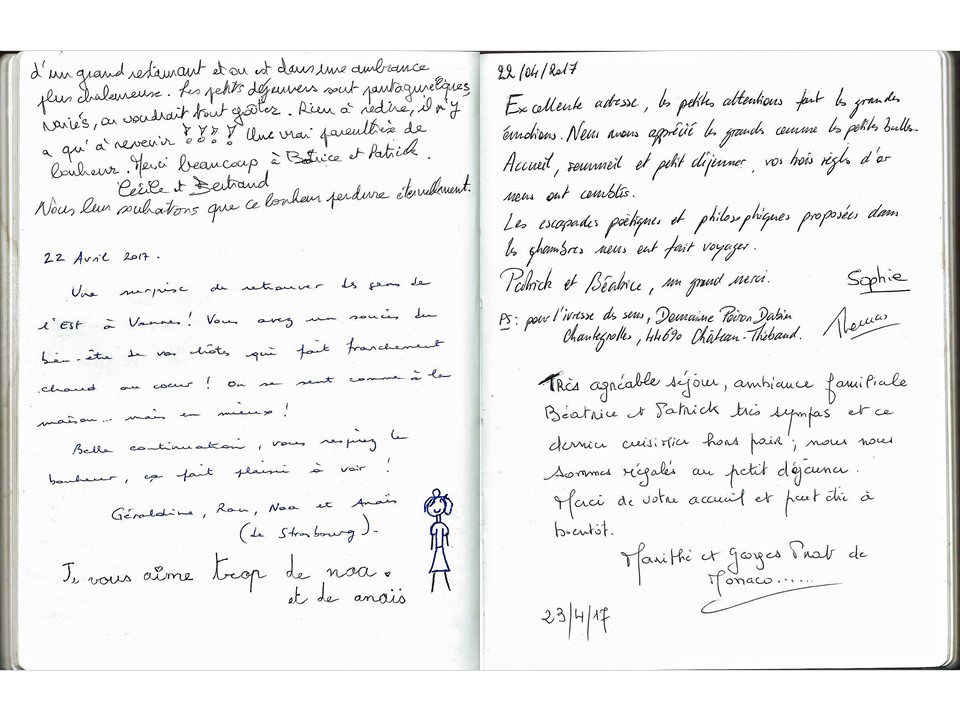 d'un grand restaurant et on est dans une ambiance
plus chaleureuse. Les petits déjeuners sont pantagruéliques,
variés, on voudrait tout goûter. Rien à redire, il n'y
a qu'à revenir !!!! Une vrai parenthèse de
bonheur. Merci beaucoup à Béatrice et Patrick.
Cécile et Bertrand
Nous leur souhaitons que ce bonheur perdure éternellement.
22 Avril 2017.
Une surprise de retrouver des gens de
l'Est à Vannes! Vous avez un soucis du
bien-être de vos hôtes qui fait franchement
chaud au coeur! On se sent comme à la
maison... mais en mieux!
Belle continuation, vous respirez le
bonheur, ça fait plaisir à voir!
Géraldine, Ran, Noa et Anaïs
(de Strasbourg).
Je vous aime trop de noa.
et de anaïs
22/04/2017
Excellente adresse, les petites attentions font les grandes
émotions. Nous avons apprécié les grands comme les petites bulles.
Accueil, sommeil et petit déjeuner, vos trois règles d'or
nous ont comblés.
Les escapades poëtiques et philosophiques proposées dans
les chambres nous ont fait voyager.
Patrick et Béatrice, un grand merci.
Sophie
PS: pour l'ivresse des sens, Domaine Poiron Dabin
Chantegrolles, 44690 Château-Thébaud.
Thomas
Très agréable séjour, ambiance familiale
Béatrice et Patrick très sympas et ce
dernier cuisinier hors pair; nous nous
sommes régalés au petit déjeuner.
Merci de votre accueil et peut être à
bientôt.
Marithé et Georges de
Monaco......
23/4/17